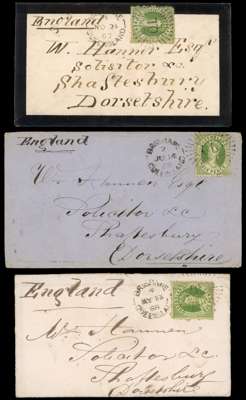 England
W. Hannen Esqr
Solicitor &c.
Shaftesbury
Dorsetshire.
England
Wm Hannen Esqr
Solicitor &c
Shaftesbury
Dorsetshire
BRISBANE
England
Wm Hannen
Solicitor &c.
Shaftesbury
Dorsetshire
BRISBANE